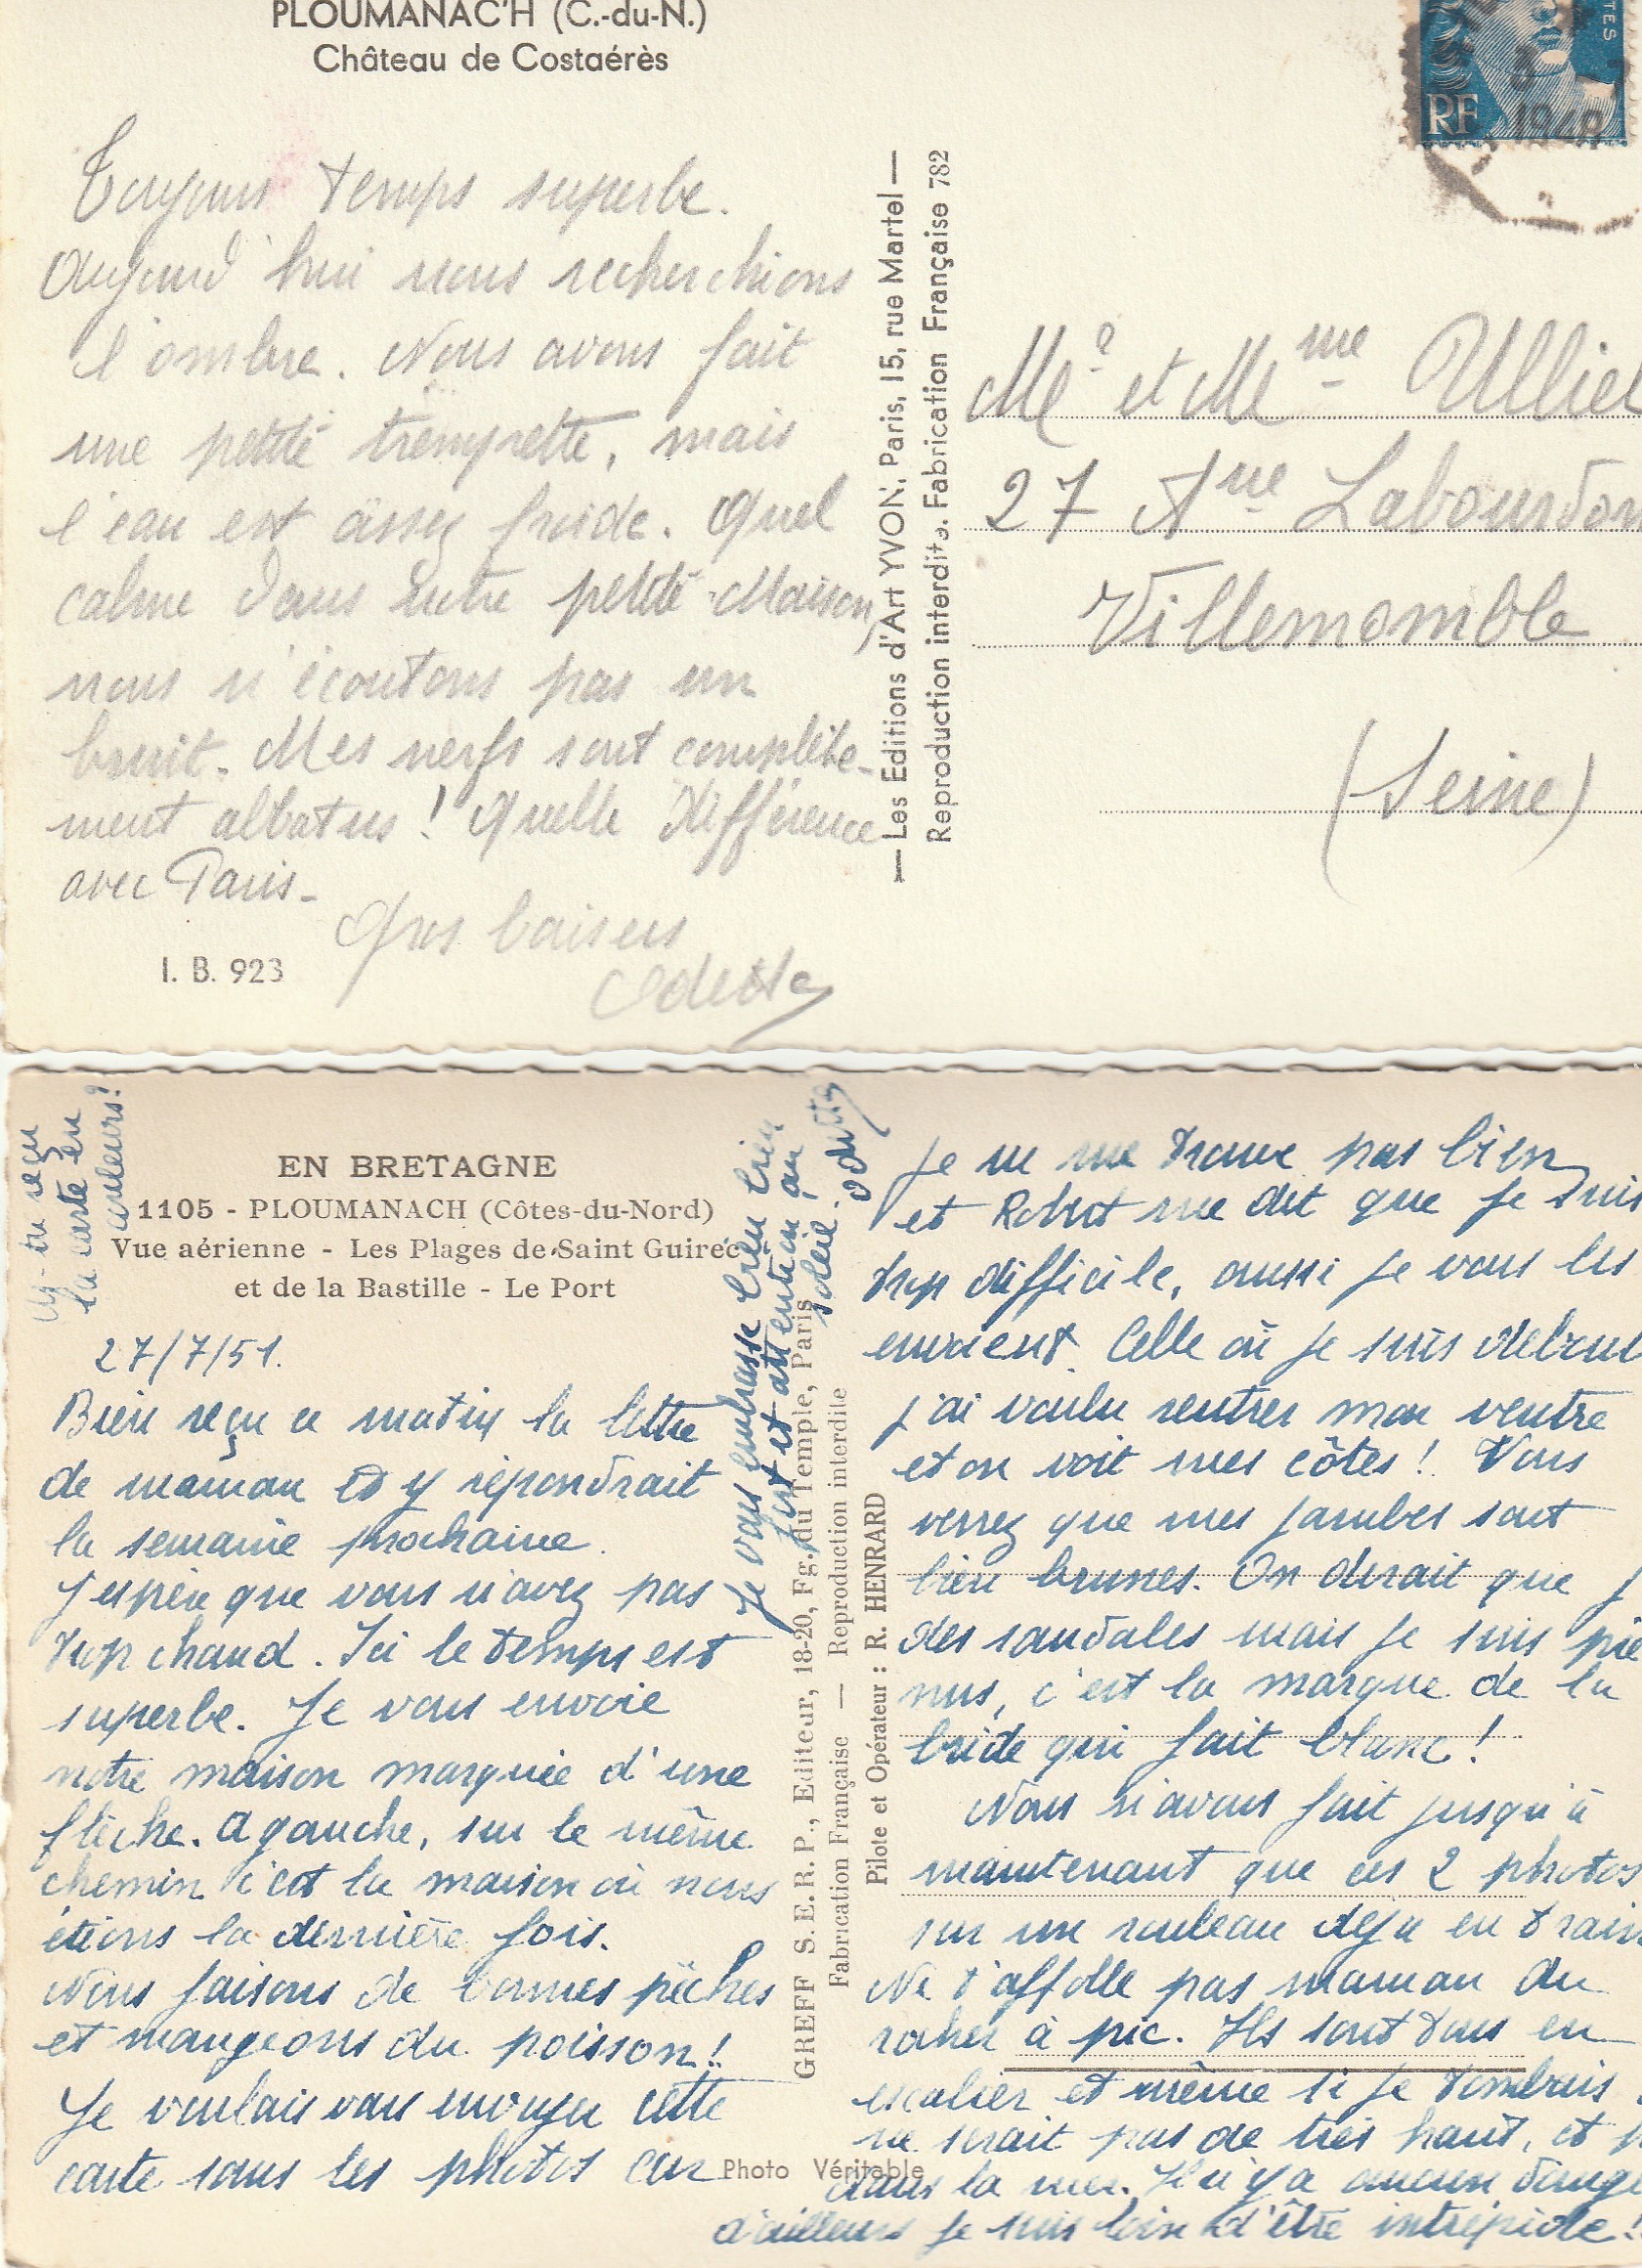 PLOUMANAC'H (C.-du-N.)
Château de Costaérès
TES
RF
1948
Toujours temps superbe.
Aujourd'hui nous recherchions
l'ombre. Nous avons fait
une petite trempette, mais
l'eau est assez froide. Quel
calme dans notre petite Maison,
nous n'écoutons pas un
bruit. Mes nerfs sont complète-
ment abbatus ! Quelle différence
avec Paris.
Gros baisers
Odette
I. B. 923
— Les Editions d'Art YVON, Paris, 15, rue Martel —
Reproduction interdite. Fabrication Française 782
Mr et Mme Ulliel
27 Aue Labourdon
Villemomble
(Seine)
EN BRETAGNE
1105 - PLOUMANACH (Côtes-du-Nord)
Vue aérienne - Les Plages de Saint Guirec
et de la Bastille - Le Port
27/7/51.
Bien reçu ce matin la lettre
de maman et y répondrait
la semaine prochaine.
J'espère que vous n'avez pas
trop chaud. Ici le temps est
superbe. Je vous envoie
notre maison marquée d'une
flèche. A gauche, sur le même
chemin c'est la maison où nous
étions la dernière fois.
Nous faisons de bonnes pêches
et mangeons du poisson !
Je voulais vous envoyer cette
carte sans les photos car
je ne me trouve pas bien
et Robert me dit que je suis
trop difficile, aussi je vous les
envoient. Celle où je suis debout
j'ai voulu rentrer mon ventre
et on voit mes côtes ! Vous
verrez que mes jambes sont
bien brunes. On dirait que j
des sandales mais je suis pie
nus, c'est la marque de la
bride qui fait blanc !
Nous n'avons fait jusqu'à
maintenant que ces 2 photos
sur un rouleau déjà en train
Ne t'affolle pas maman du
rocher à pic. Ils sont tous en
escalier et même si je tombais
ne serait pas de très haut, et
dans la mer. Il n'y a aucun dange
d'ailleurs je suis loin d'être intrépide !
Je vous embrasse bien bien
fort et attention au
soleil. Odette
As-tu reçu
la carte en
couleurs ?
GREFF S. E. R. P., Editeur, 18-20, Fg. du Temple, Paris
Fabrication Française — Reproduction interdite
Pilote et Opérateur : R. HENRARD
Photo Véritable